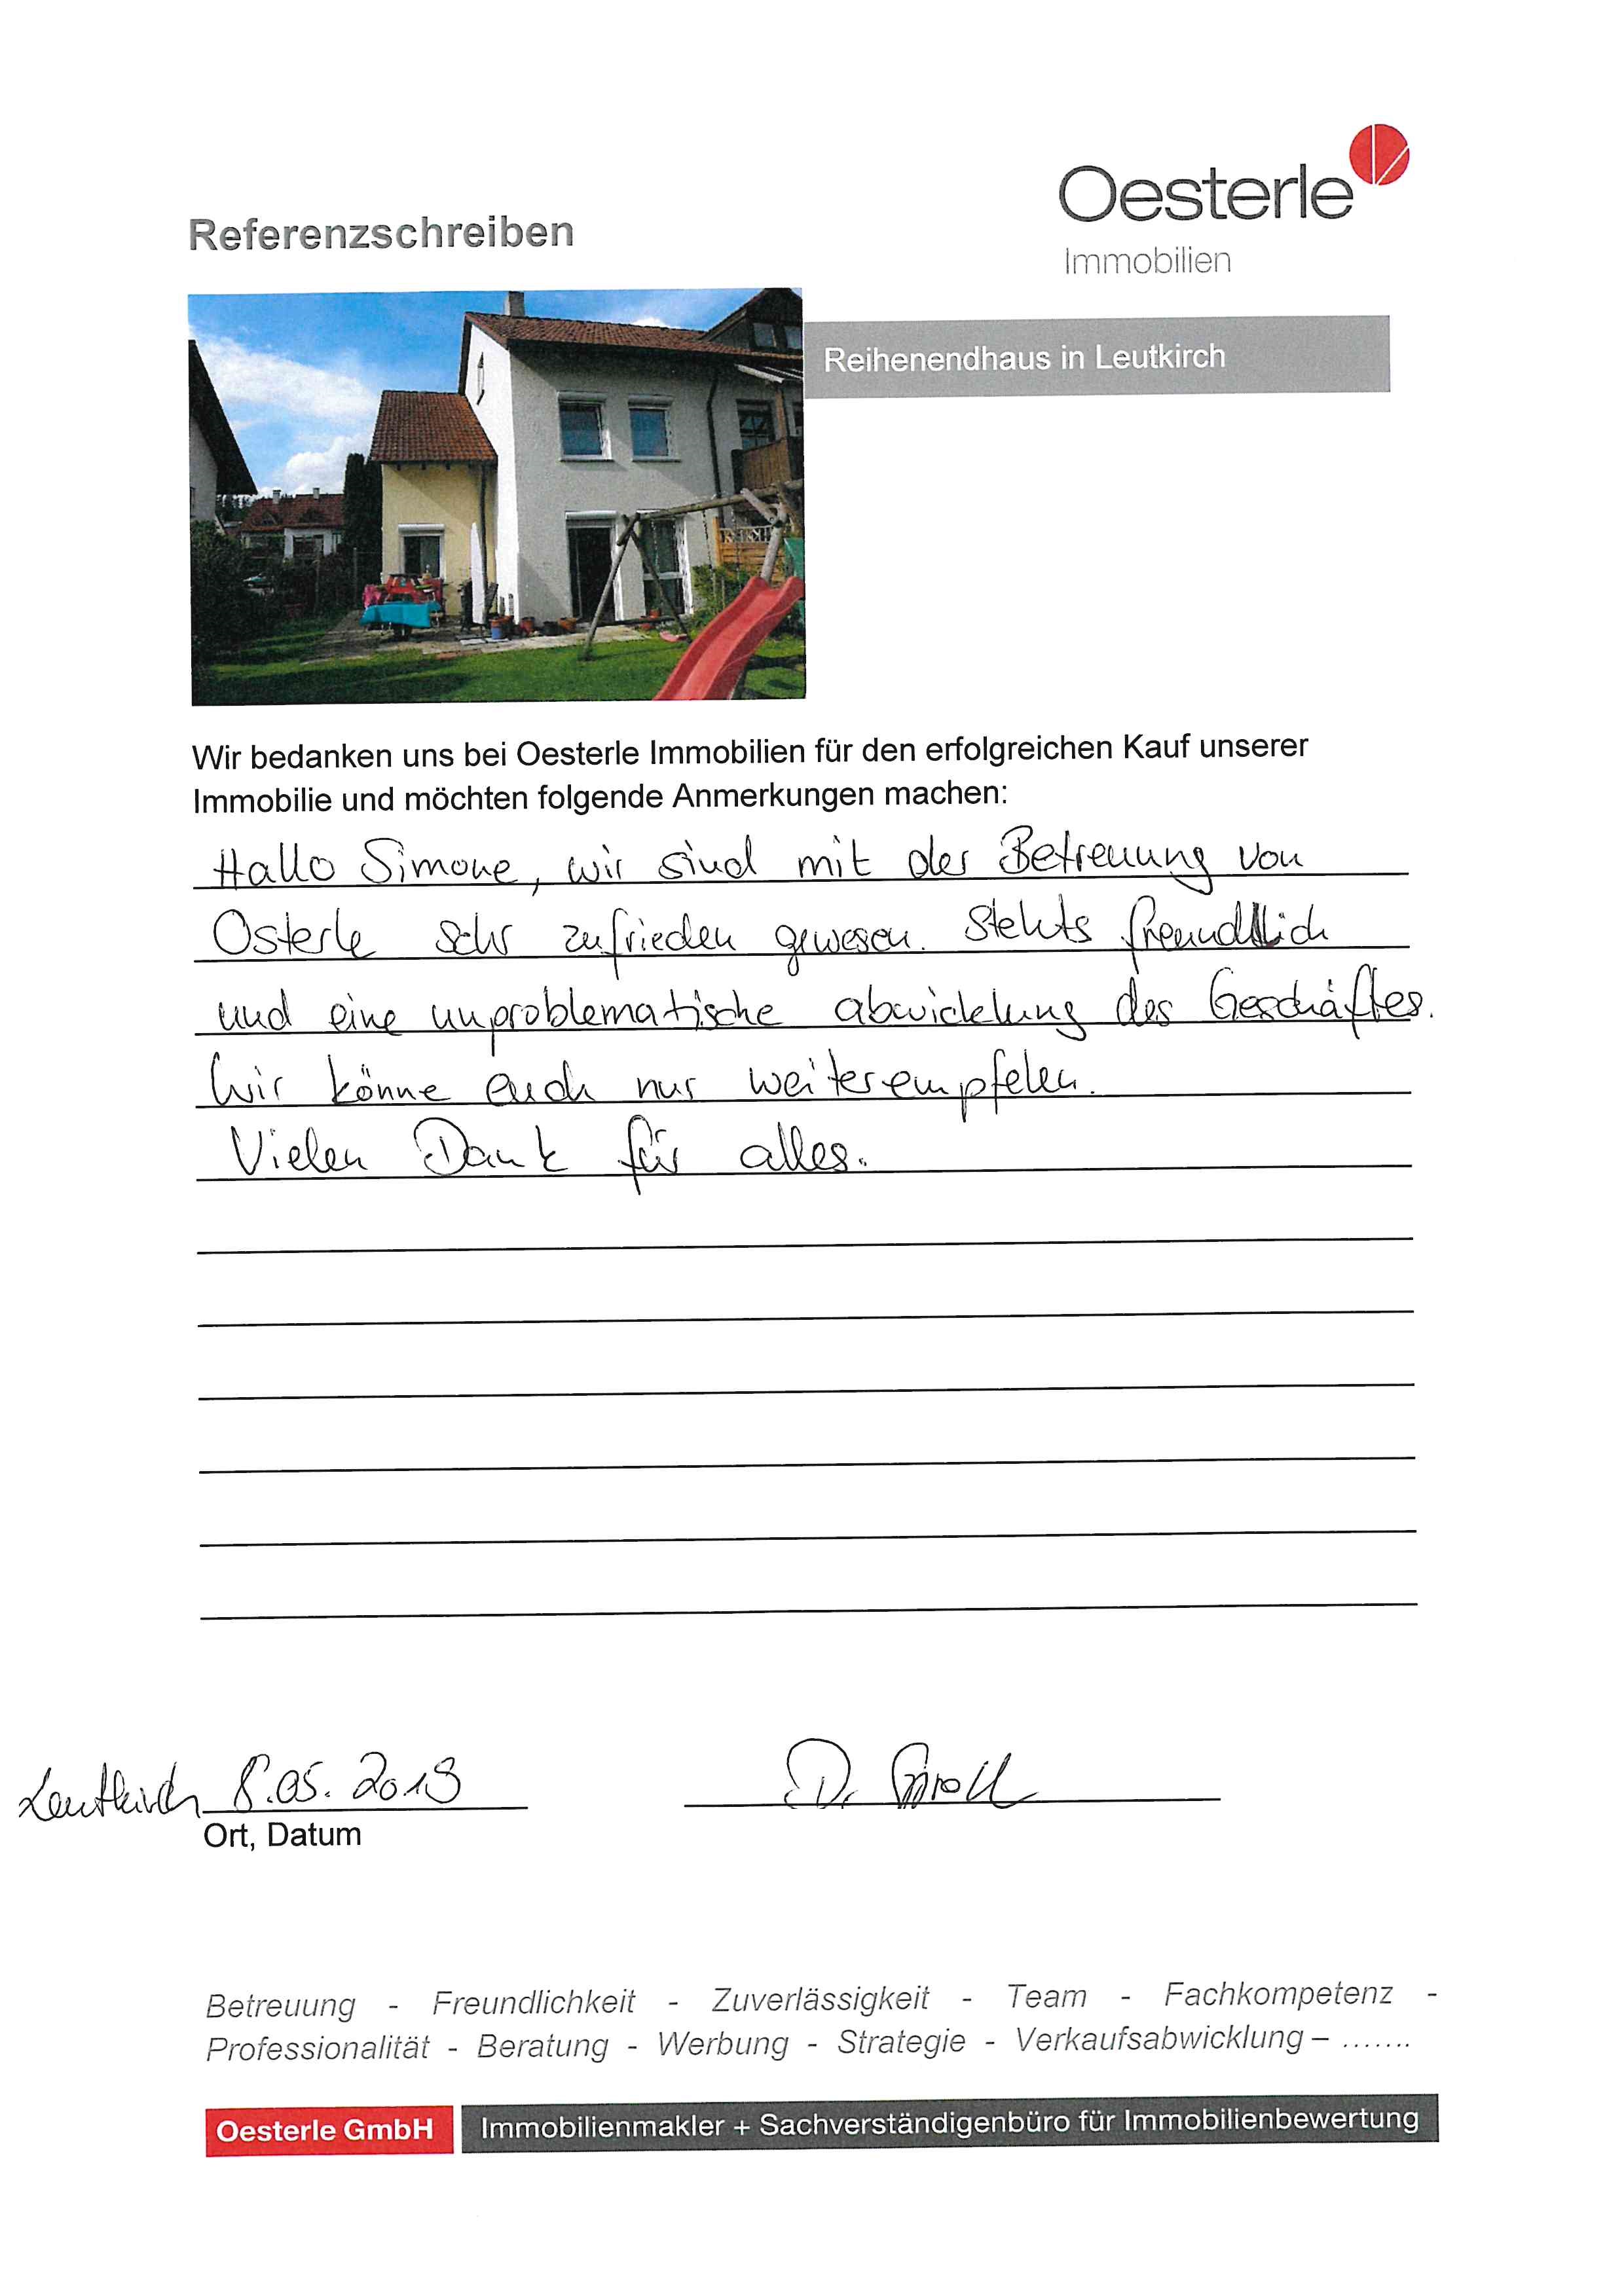 Oesterle
Immobilien
Referenzschreiben
Reihenendhaus in Leutkirch
Wir bedanken uns bei Oesterle Immobilien für den erfolgreichen Kauf unserer
Immobilie und möchten folgende Anmerkungen machen:
Hallo Simone, wir sind mit der Betreuung von
Osterle sehr zufrieden gewesen. Stehts freundlich
und eine unproblematische abwickelung des Geschäftes.
Wir könne euch nur weiterempfelen.
Vielen Dank für alles.
Leutkirch 8.05.2019
D.
Ort, Datum
Betreuung - Freundlichkeit - Zuverlässigkeit - Team - Fachkompetenz -
Professionalität - Beratung - Werbung - Strategie - Verkaufsabwicklung – .......
Oesterle GmbH Immobilienmakler + Sachverständigenbüro für Immobilienbewertung